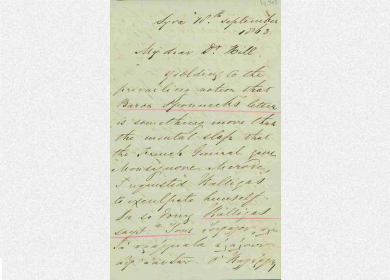 Syra 10.th September
1863
My dear Dr. Hill
yielding to the
prevailing notion that
Baron Sponneck's letter
is something more than
the mental slap that
the French General gave
Monsignore Merode,
I requested Kalligas
to exculpate himself.
In so doing Kalligas
says: